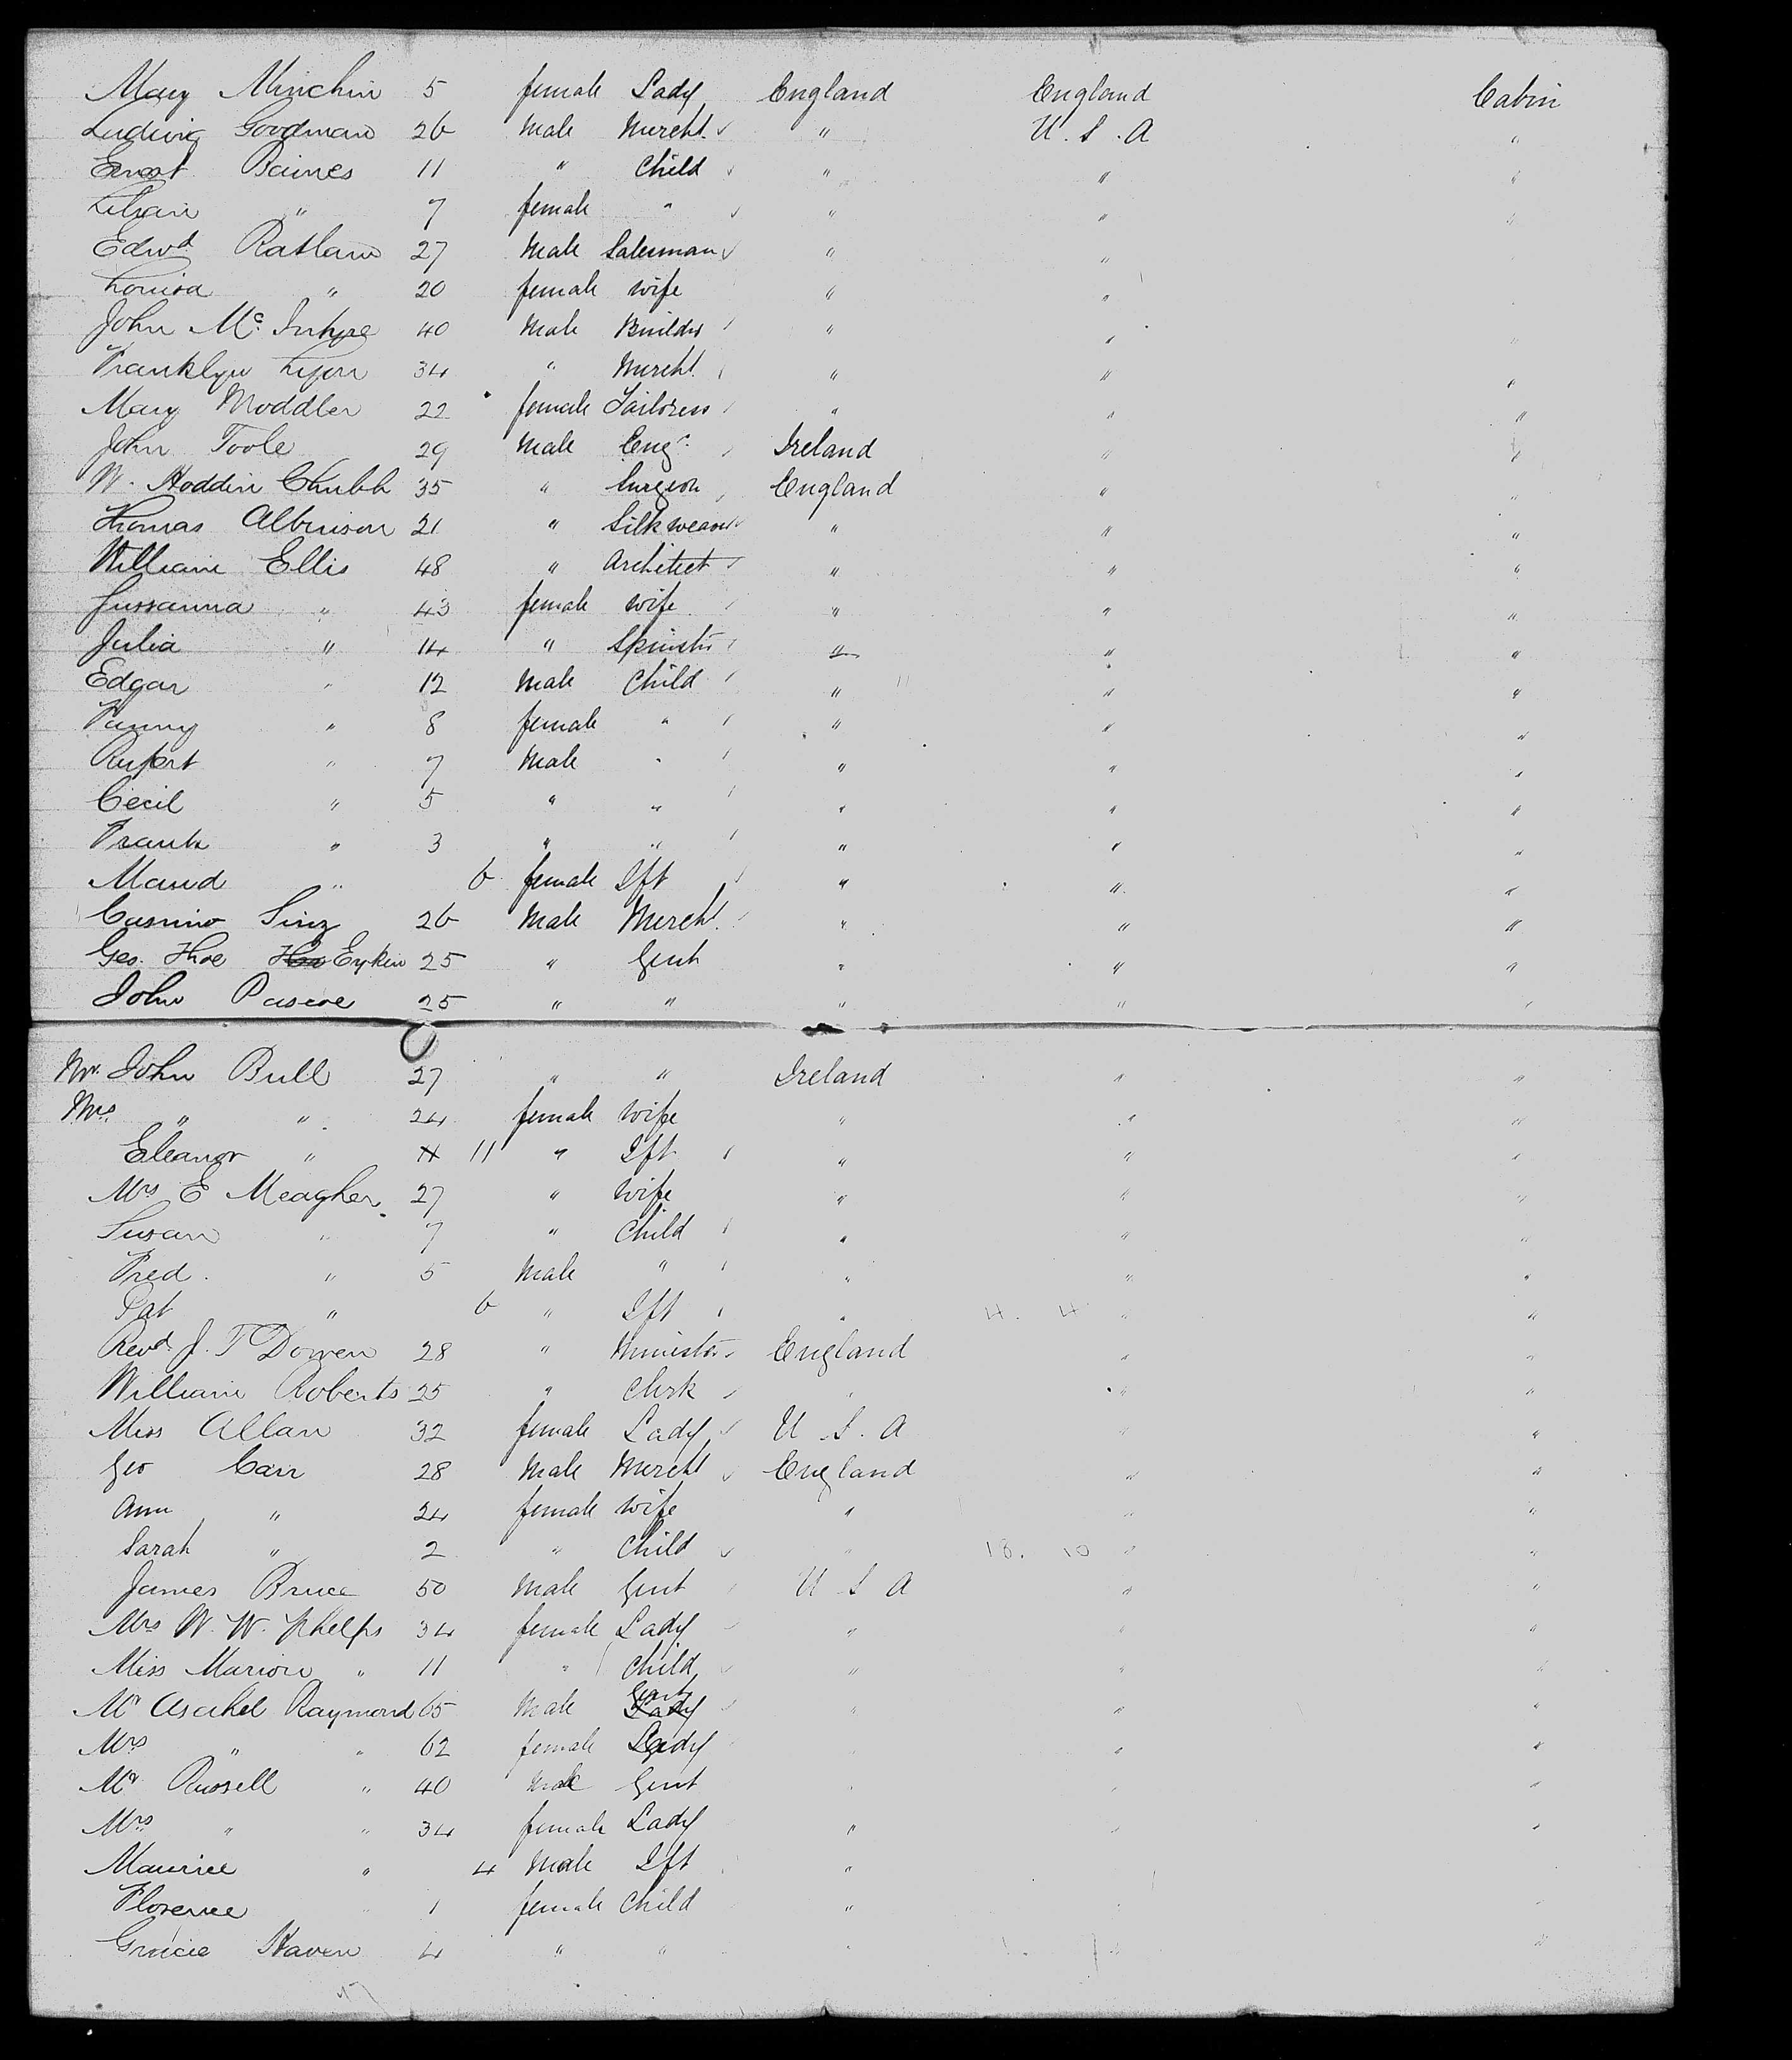 Mary Minchin 5 female Lady England England Cabin
Ludwig Goodman 26 Male Mercht. " U.S.A "
Ernest Baines 11 " Child " " "
Lilian " 7 female " " " "
Edwd Ratlaw 27 Male Salesman " "
Louisa " 20 female wife " "
John Mc. Intyre 40 Male Builder " " "
Franklyn Lyon 34 " Mercht. " " "
Mary Moddler 22 female Tailoress " " "
John Toole 29 Male Engr. Ireland " "
W. Hoddin Chubb 35 " Surgeon England " "
Thomas Albinson 21 " Silk weaver " " "
William Ellis 48 " Architect " " "
Sussanna " 43 female wife " " "
Julia " 14 " Spinster " " "
Edgar " 12 Male Child " " "
Fanny " 8 female " " " "
Rupert " 7 Male " " " "
Cecil " 5 " " " " "
Frank " 3 " " " " "
Maud " 6 female Ift " " "
Casimo Sinz 26 Male Mercht. " " "
Geo. Thoe Eykin 25 " Gent " " "
John Pascoe 25 " " " " "
Mr. John Bull 27 " " Ireland " "
Mrs. " " 24 female wife " " "
Eleanor " 11 " Ift " " "
Mrs E Meagher 27 " wife " " "
Susan " 7 " Child " " "
Fred. " 5 Male " " " "
Pat " 6 " Ift " 4. 4 " "
Revd J. T Dowen 28 " Minister England " "
William Roberts 25 " Clerk " " "
Miss Allan 32 female Lady U.S.A " "
Geo Carr 28 Male Mercht England " "
Ann " 24 female wife " " "
Sarah " 2 " Child " 18. 10 " "
James Bruce 50 Male Gent U S A " "
Mrs W. W. Phelps 34 female Lady " " "
Miss Marion " 11 " Child " " "
Mr Asahel Raymond 65 Male Gent Lady " " "
Mrs " " 62 female Lady " "
Mr Russell " 40 Male Gent " " "
Mrs " " 34 female Lady " " "
Maurice " 4 Male Ift "
Florence " 1 female Child "
Gracie Haven 4 " " " " "